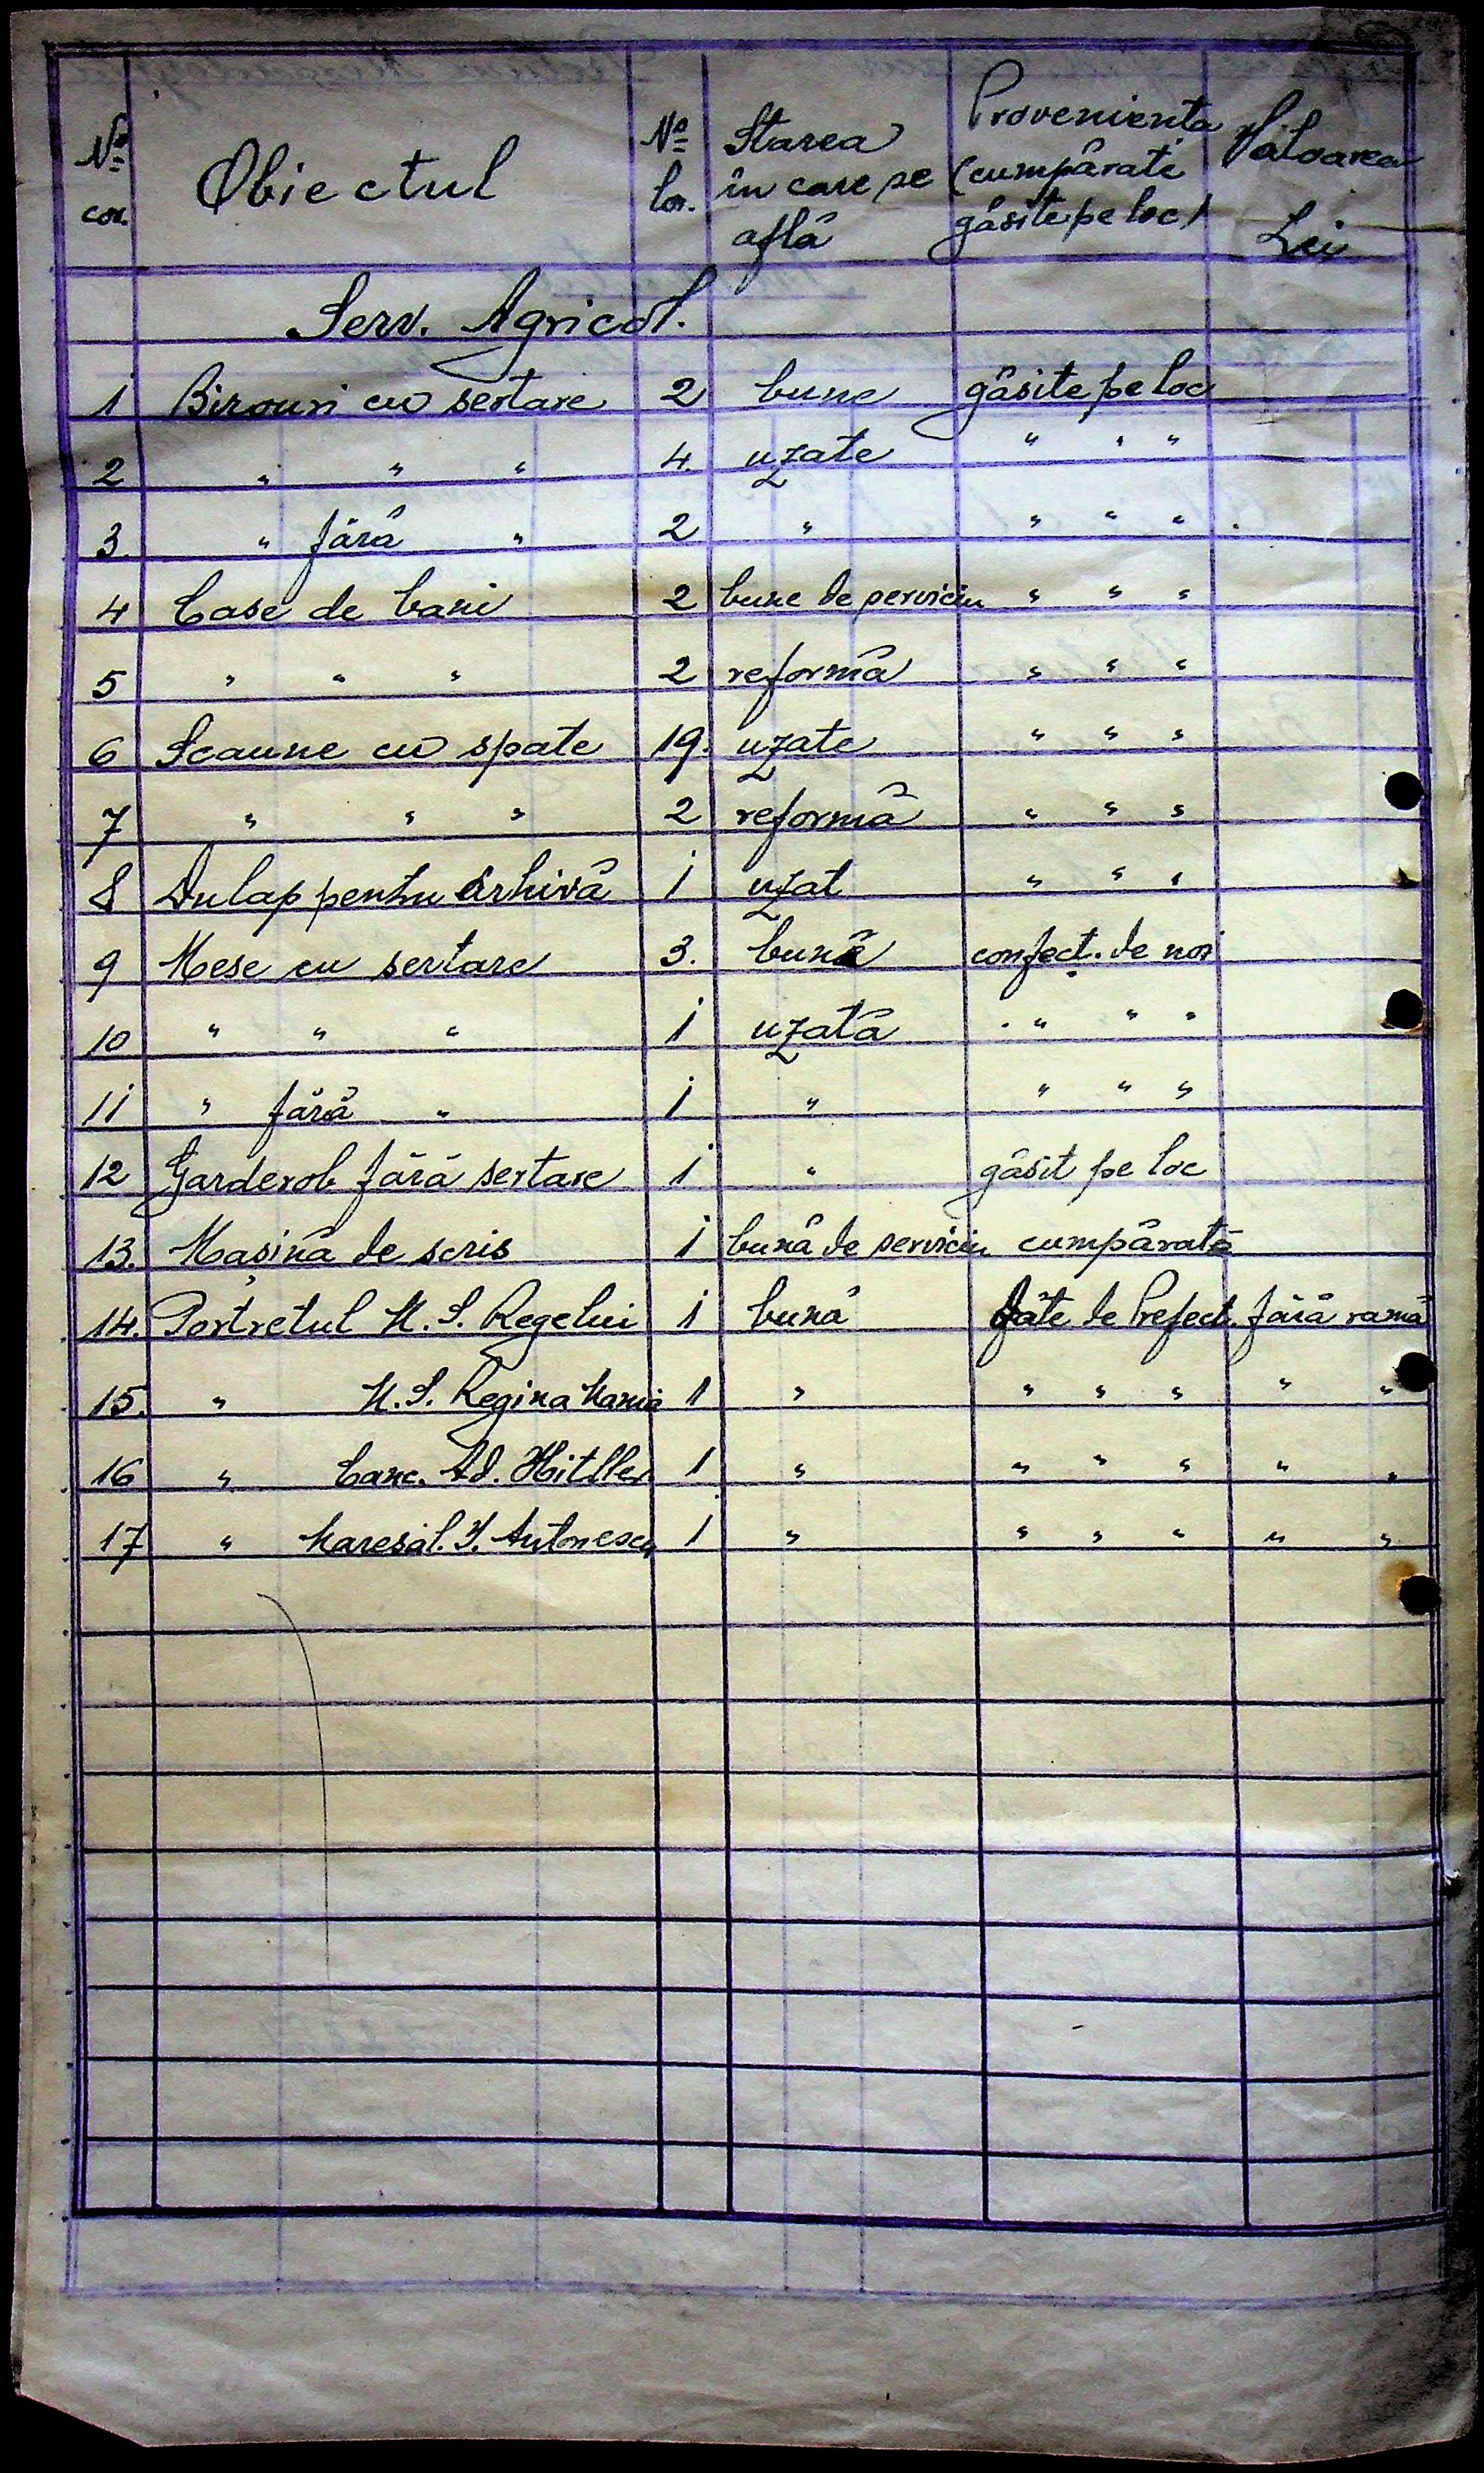 No cor. Obiectul No lor. Starea în care se află Provenienta (cumpărate găsite pe loc) Valoarea Lei
Serv. Agricol.
1 Birouri cu sertare 2 bune găsite pe loc
2 " " " 4. uzate " " "
3. " fără " 2 " " " "
4 Case de bani 2 bune de serviciu " " "
5 " " " 2 reformă " " "
6 Scaune cu spate 19. uzate " " "
7 " " " 2 reformă " " "
8 Dulap pentru arhivă 1 uzat " " "
9 Mese cu sertare 3. bună confecț. de noi
10 " " " 1 uzată " " "
11 " fără " 1 " " " "
12 Garderob fără sertare 1 " găsit pe loc
13. Mașină de scris 1 bună de serviciu cumpărată
14. Portretul M. S. Regelui 1 bună date de Prefect. fără ramă
15. " M. S. Regina Maria 1 " " " " " "
16 " Canc. Ad. Hitller 1 " " " " " "
17 " Maresal. I. Antonescu 1 " " " " " "